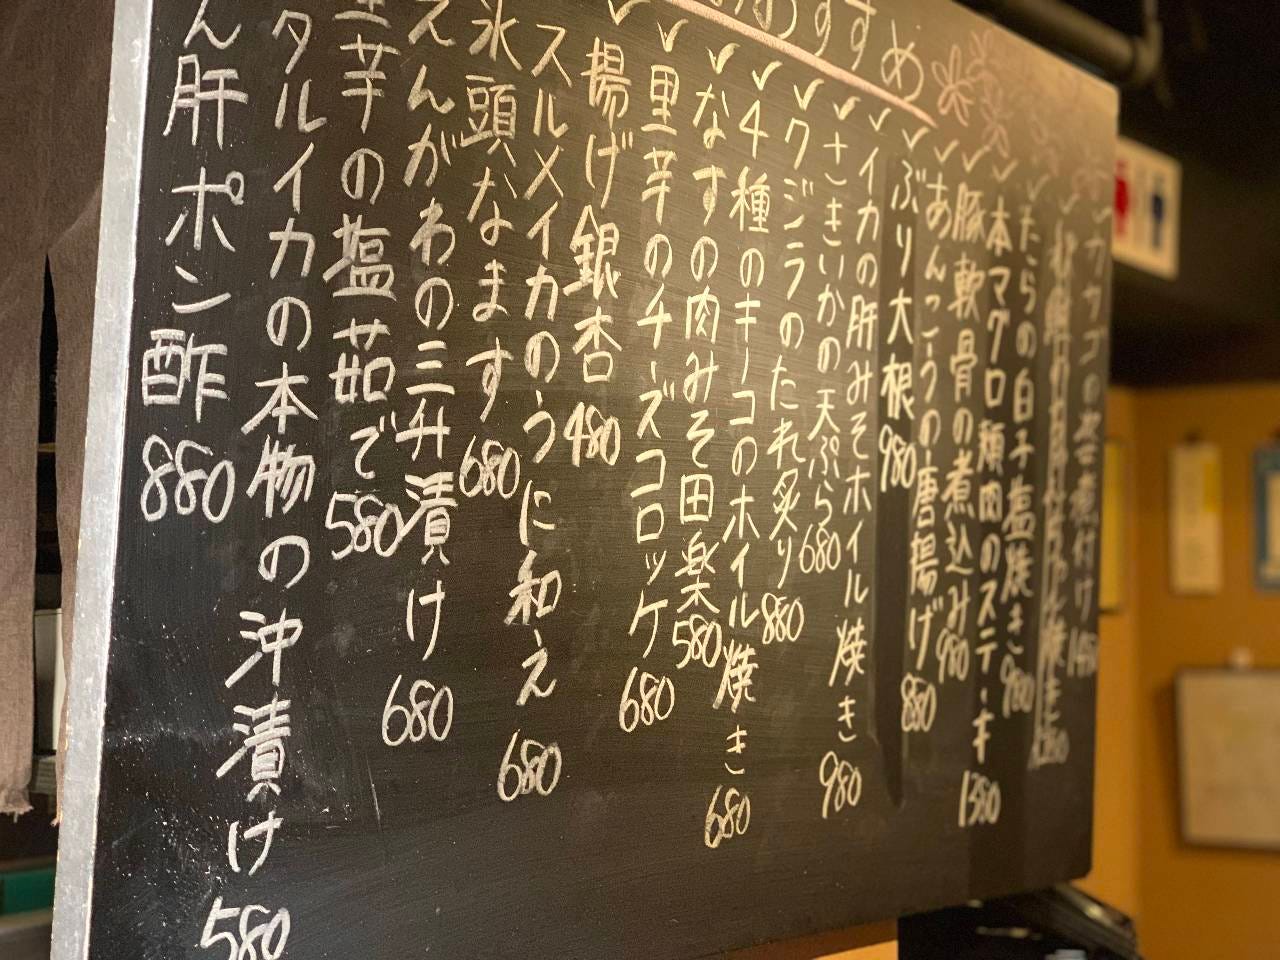 おすすめ
カサゴの姿煮付け
たらの白子塩焼き 980
本マグロ頬肉のステーキ 1380
豚軟骨の煮込み 980
あんこうの唐揚げ 880
ぶり大根 980
イカの肝みそホイル焼き 980
さきいかの天ぷら 680
クジラのたれ炙り 880
4種のキノコのホイル焼き 680
なすの肉みそ田楽 580
里芋のチーズコロッケ 680
揚げ銀杏 480
スルメイカのうに和え 680
氷頭なます 680
えんがわの三升漬け 680
里芋の塩茹で 580
タルイカの本物の沖漬け 580
ん肝ポン酢 880